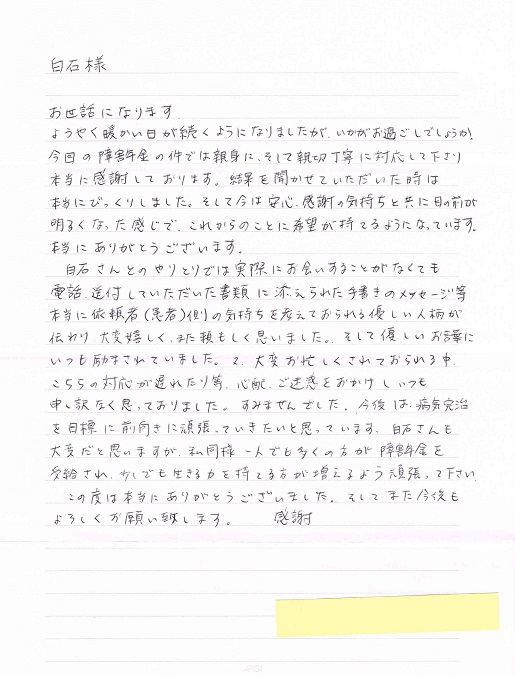 白石様
お世話になります。
ようやく暖かい日が続くようになりましたが、いかがお過ごしでしょうか?
今回の障害年金の件では親身に、そして親切丁寧に対応して下さり
本当に感謝しております。結果を聞かせていただいた時は
本当にびっくりしました。そして今は安心、感謝の気持ちと共に目の前が
明るくなった感じで、これからのことに希望が持てるようになっています。
本当にありがとうございます。
白石さんとのやりとりでは実際にお会いすることがなくても
電話、送付していただいた書類に添えられた手書きのメッセージ等
本当に依頼者(患者)側の気持ちを考えておられる優しい人柄が
伝わり、大変嬉しく、また頼もしく思いました。そして優しいお言葉に
いつも励まされていました。大変お忙しくされておられる中、
こちらの対応が遅れたり等、心配、ご迷惑をおかけし、いつも
申し訳なく思っておりました。すみませんでした。今後は、病気完治
を目標に前向きに頑張っていきたいと思っています。白石さんも
大変だと思いますが、私同様一人でも多くの方が障害年金を
受給され、少しでも生きる力を持てる方が増えるよう頑張って下さい。
この度は本当にありがとうございました。そしてまた今後も
よろしくお願い致します。 感謝